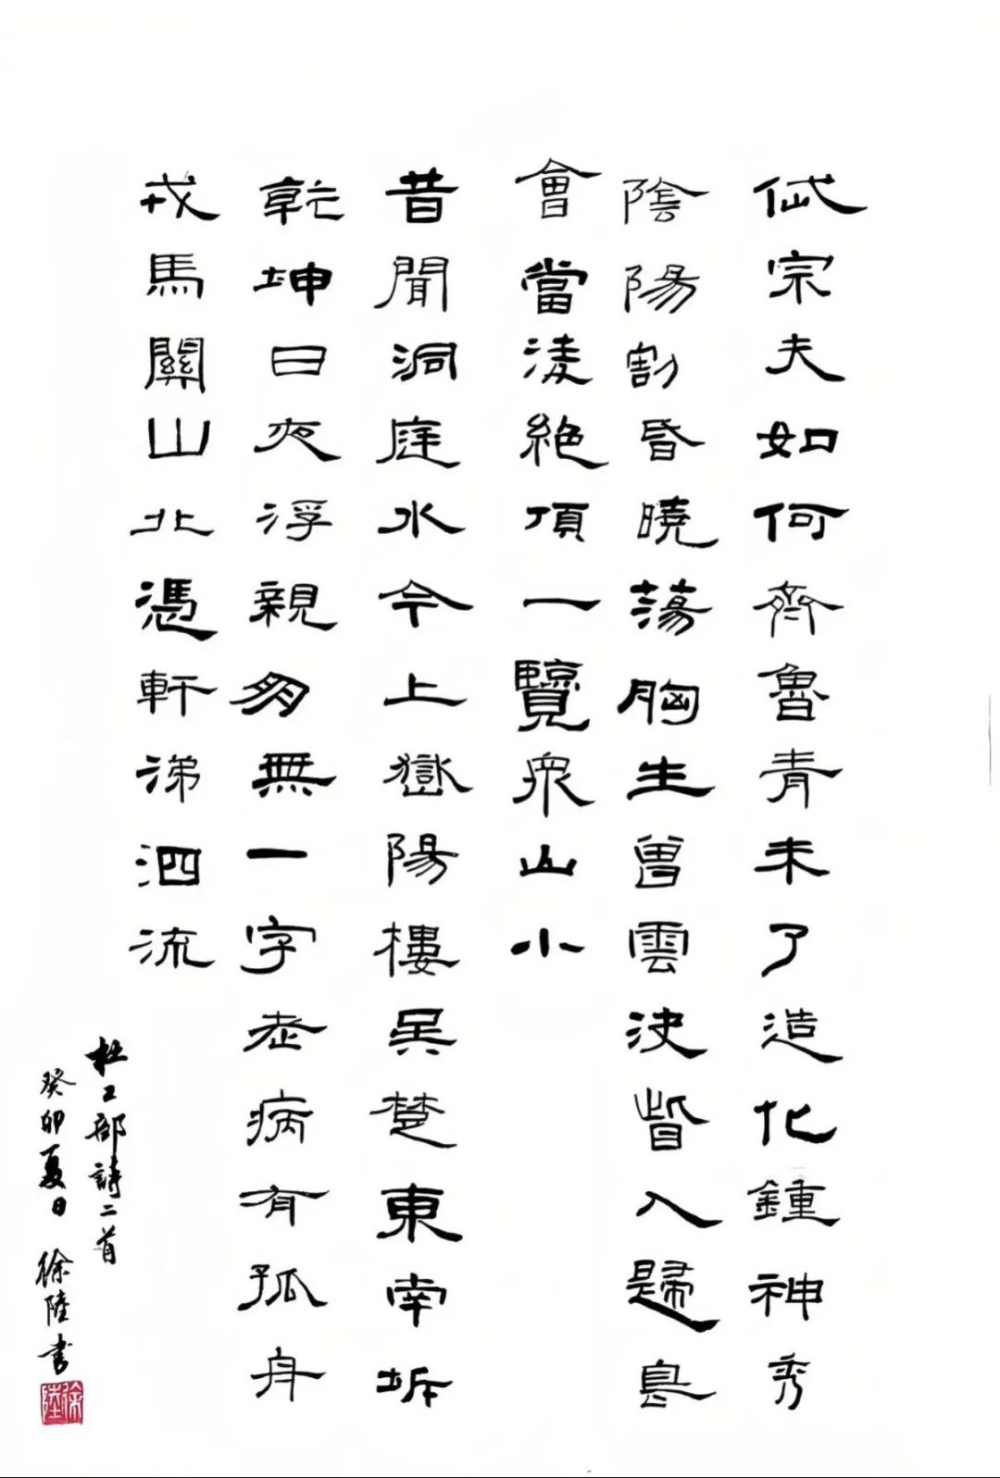 岱宗夫如何齊魯青未了造化鍾神秀
陰陽割昏曉蕩胸生曾雲決眥入歸鳥
會當凌絕頂一覽眾山小
昔聞洞庭水今上嶽陽樓吳楚東南坼
乾坤日夜浮親朋無一字老病有孤舟
戎馬關山北憑軒涕泗流
杜工部詩二首
癸卯夏日 徐陸书
徐陸